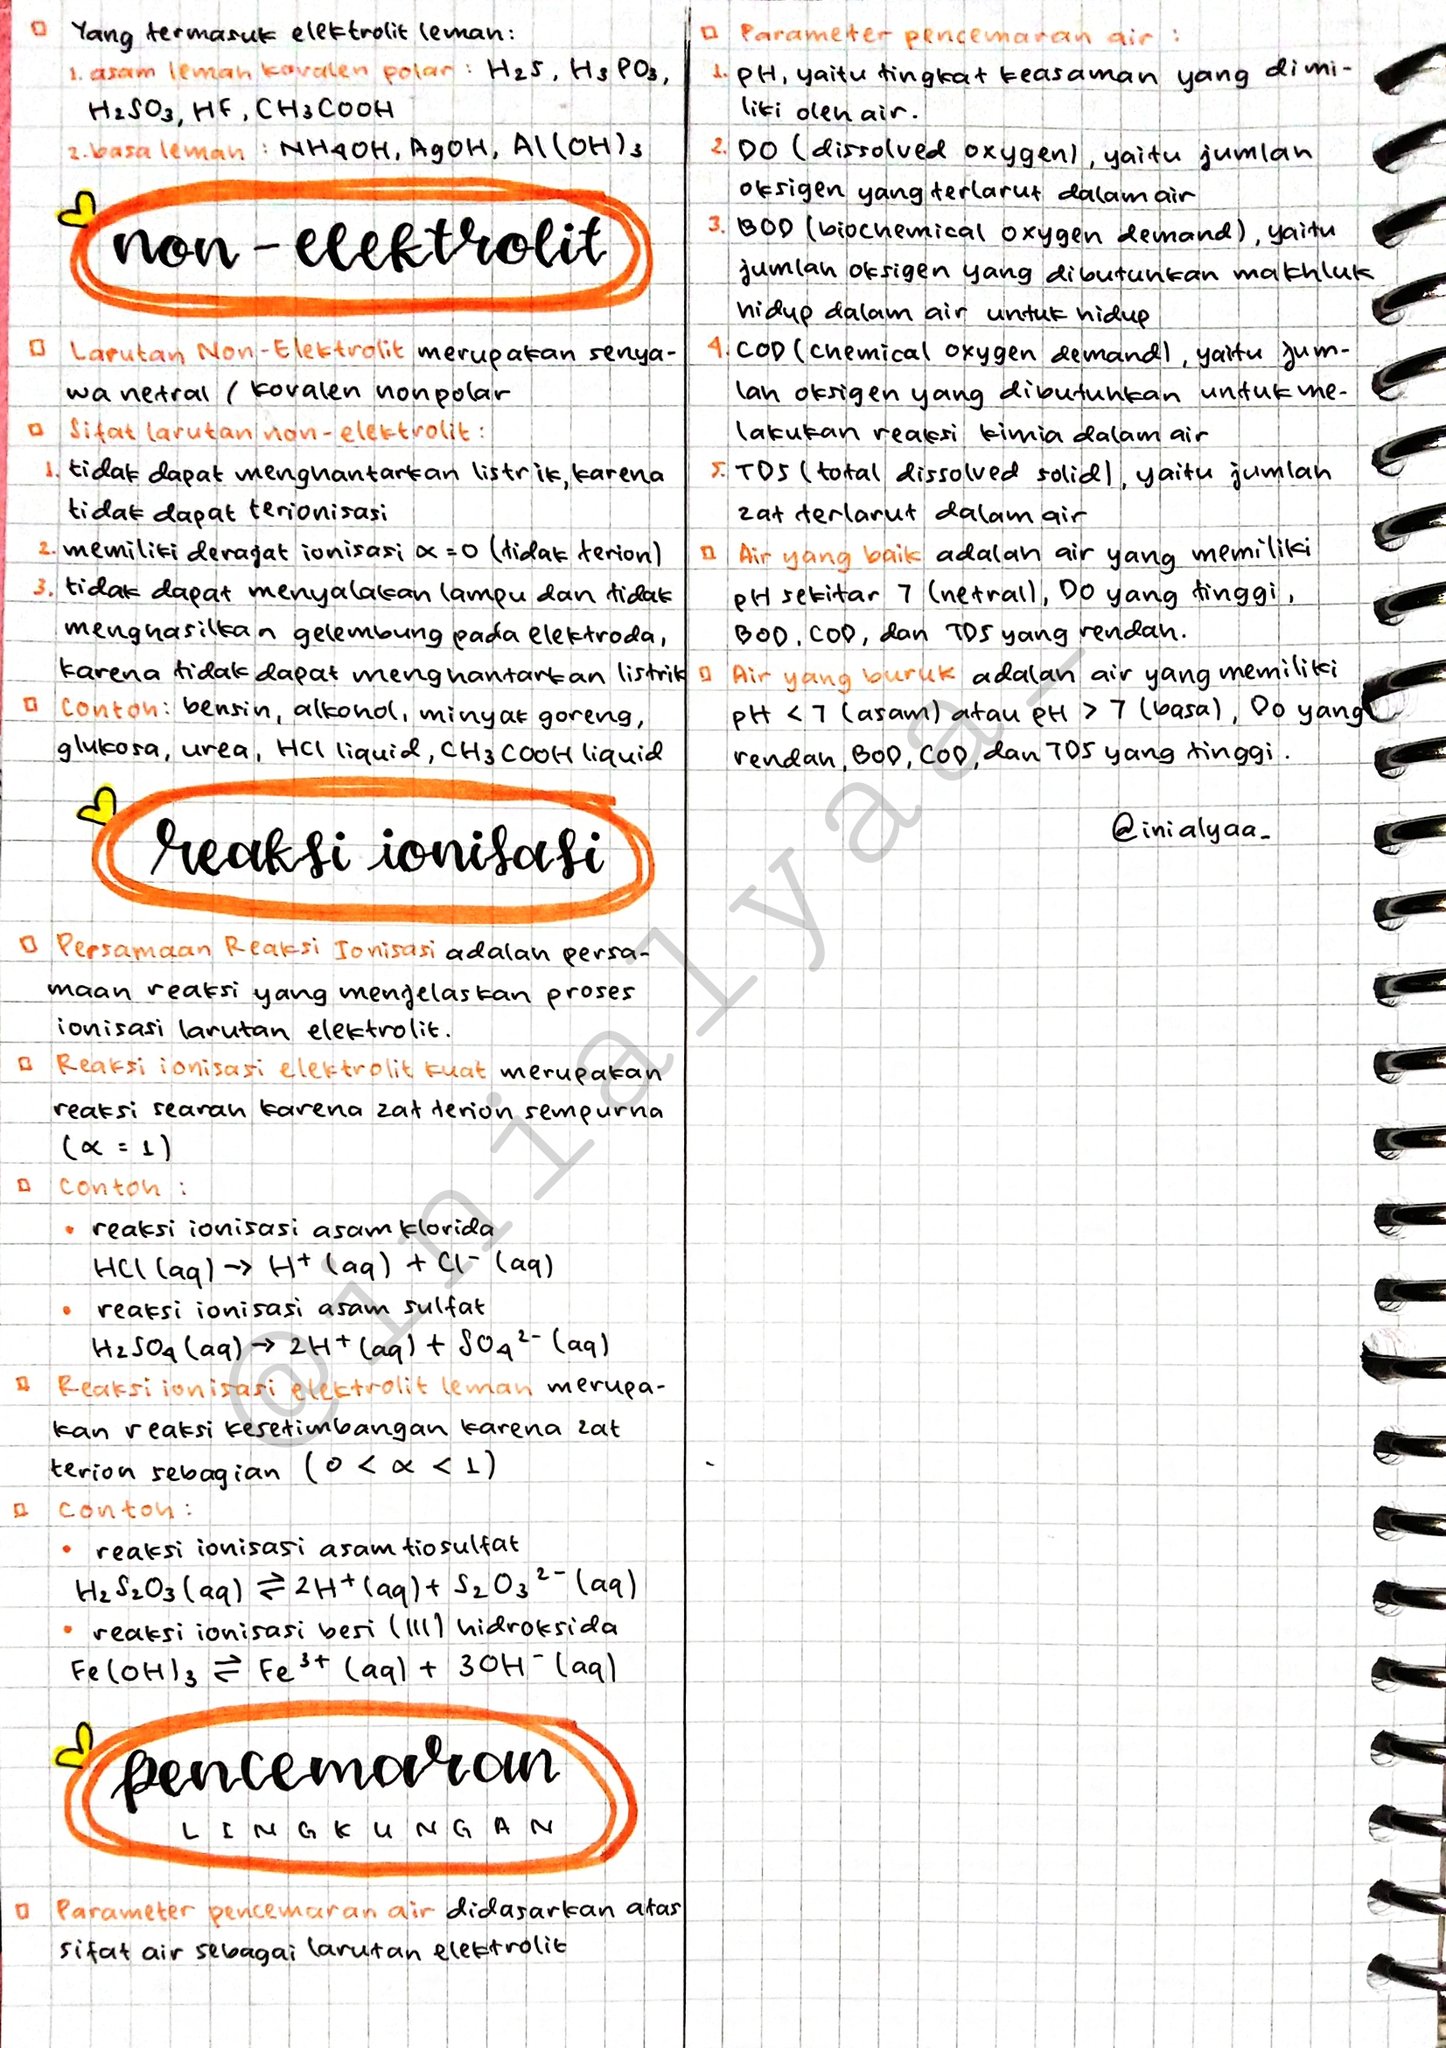 Yang termasuk elektrolit lemah:
1. asam lemah kovalen polar : H₂S, H₃PO₃,
H₂SO₃, HF, CH₃COOH
2. basa lemah : NH4OH, AgOH, Al(OH)₃
non-elektrolit
Larutan Non-Elektrolit merupakan senya-
wa netral / kovalen nonpolar
Sifat larutan non-elektrolit :
1. tidak dapat menghantarkan listrik, karena
tidak dapat terionisasi
2. memiliki derajat ionisasi α = 0 (tidak terion)
3. tidak dapat menyalakan lampu dan tidak
menghasilkan gelembung pada elektroda,
karena tidak dapat menghantarkan listrik
Contoh: bensin, alkohol, minyak goreng,
glukosa, urea, HCl liquid, CH₃COOH liquid
reaksi ionisasi
Persamaan Reaksi Ionisasi adalah persa-
maan reaksi yang menjelaskan proses
ionisasi larutan elektrolit.
Reaksi ionisasi elektrolit kuat merupakan
reaksi searah karena zat terion sempurna
(α = 1)
Contoh :
• reaksi ionisasi asam klorida
HCl (aq) → H⁺ (aq) + Cl⁻ (aq)
• reaksi ionisasi asam sulfat
H₂SO₄ (aq) → 2H⁺ (aq) + SO₄²⁻ (aq)
Reaksi ionisasi elektrolit lemah merupa-
kan reaksi kesetimbangan karena zat
terion sebagian (0 < α < 1)
Contoh :
• reaksi ionisasi asam tiosulfat
H₂S₂O₃ (aq) ⇌ 2H⁺ (aq) + S₂O₃²⁻ (aq)
• reaksi ionisasi besi (III) hidroksida
Fe(OH)₃ ⇌ Fe³⁺ (aq) + 3OH⁻ (aq)
pencemaran
LINGKUNGAN
Parameter pencemaran air didasarkan atas
sifat air sebagai larutan elektrolit
Parameter pencemaran air :
1. pH, yaitu tingkat keasaman yang dimi-
liki oleh air.
2. DO (dissolved oxygen), yaitu jumlah
oksigen yang terlarut dalam air
3. BOD (biochemical oxygen demand), yaitu
jumlah oksigen yang dibutuhkan makhluk
hidup dalam air untuk hidup
4. COD (chemical oxygen demand), yaitu jum-
lah oksigen yang dibutuhkan untuk me-
lakukan reaksi kimia dalam air
5. TDS (total dissolved solid), yaitu jumlah
zat terlarut dalam air
Air yang baik adalah air yang memiliki
pH sekitar 7 (netral), DO yang tinggi,
BOD, COD, dan TDS yang rendah.
Air yang buruk adalah air yang memiliki
pH < 7 (asam) atau pH > 7 (basa), DO yang
rendah, BOD, COD, dan TDS yang tinggi.
@inialyaa_
@inialyaa_